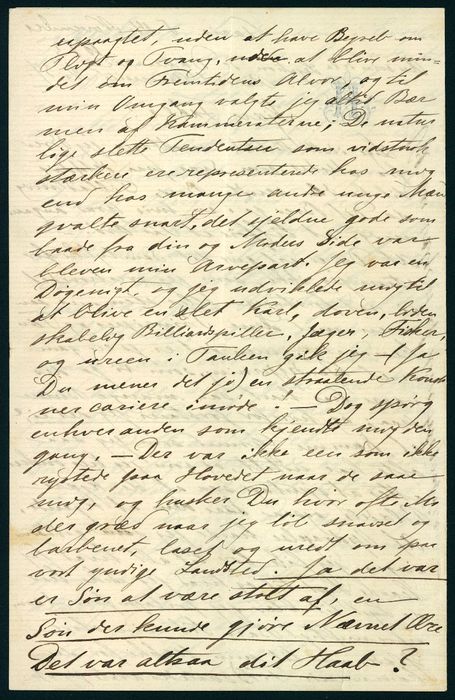 upaagtet, uden at have Begreb om
Pligt og Tvang, uden at blive min-
det om Fremtidens Alvor, og til
min Omgang valgte jeg altid Bær
men af Kammeraterne; De natur
lige slette Tendentser som vidstnok
stærkere ere repræsenterede hos mig
end hos mange andre unge Mæn
qvalte snart, det sjeldne gode som
baade fra din og Moders Side var
bleven min Arvepart. Jeg var en
Døgenigt og jeg udviklede mig til
at blive en slet Karl, doven, liden
skabelig Billiardspiller, Jæger, Fisker,
og ureen i Tanken gik jeg – (Ja
Du mener det jo) en straalende Konst
nercariere imøde! – Dog spørg
enhver anden som kjendte mig den
gang, – Der var ikke een som ikke
rystede paa Hovedet naar de saae
mig, og husker Du hvor ofte Mo
der græd naar jeg løb snavset og
barbenet, laset og uredt om paa
vort yndige Landsted. Ja det var
er Søn at være stolt af, en
Søn der kunde gjøre Navnet Ære
Det var altsaa dit Haab?